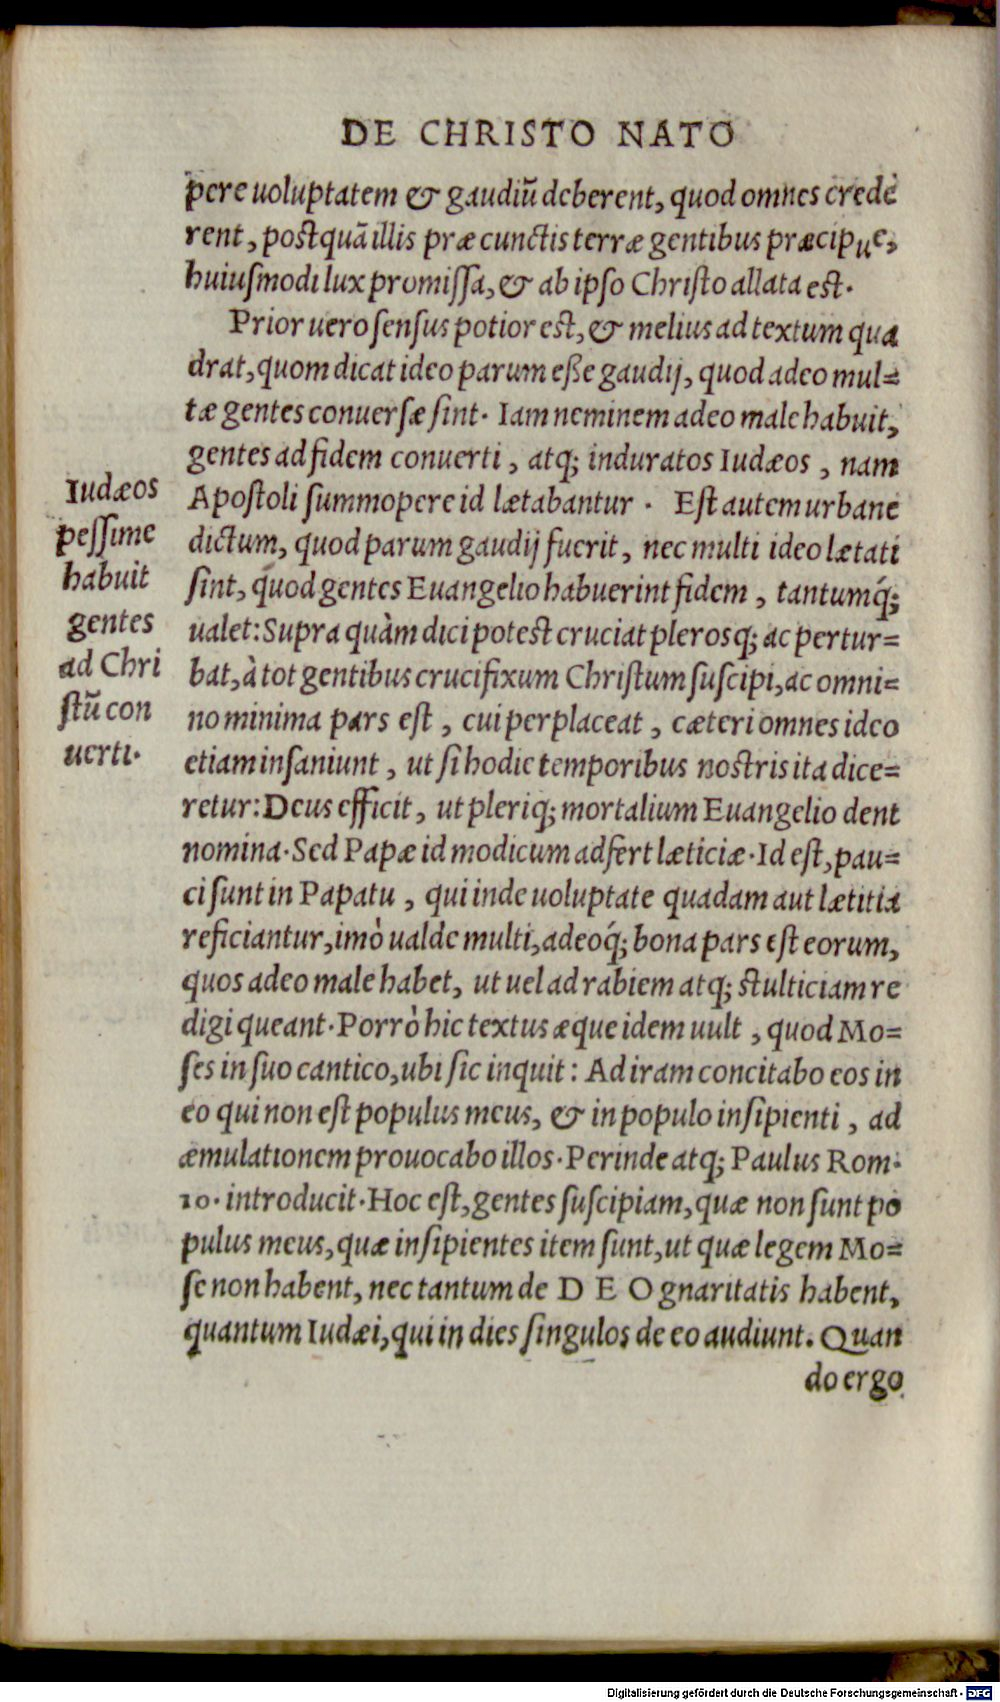 DE CHRISTO NATO
pere uoluptatem & gaudiũ deberent, quod omnes crede
rent, postquã illis præ cunctis terræ gentibus præcipue,
huiusmodi lux promissa, & ab ipso Christo allata est.
Prior uero sensus potior est, & melius ad textum qua
drat, quom dicat ideo parum eße gaudij, quod adeo mul=
tæ gentes conuersæ sint. Iam neminem adeo male habuit,
gentes ad fidem conuerti, atq; induratos Iudæos, nam
Apostoli summopere id lætabantur. Est autem urbane
dictum, quod parum gaudij fuerit, nec multi ideo lætati
sint, quod gentes Euangelio habuerint fidem, tantumq́;
ualet: Supra quàm dici potest cruciat plerosq; ac pertur=
bat, à tot gentibus crucifixum Christum suscipi, ac omni=
no minima pars est, cui perplaceat, cæteri omnes ideo
etiam insaniunt, ut si hodie temporibus nostris ita dice=
retur: Deus efficit, ut pleriq; mortalium Euangelio dent
nomina. Sed Papæ id modicum adfert læticiæ. Id est, pau=
ci sunt in Papatu, qui inde uoluptate quadam aut lætitia
reficiantur, imò ualde multi, adeoq́; bona pars est eorum,
quos adeo male habet, ut uel ad rabiem atq; stulticiam re
digi queant. Porrò hic textus æque idem uult, quod Mo=
ses in suo cantico, ubi sic inquit: Ad iram concitabo eos in
eo qui non est populus meus, & in populo insipienti, ad
æmulationem prouocabo illos. Perinde atq; Paulus Rom.
10. introducit. Hoc est, gentes suscipiam, quæ non sunt po
pulus meus, quæ insipientes item sunt, ut quæ legem Mo=
se non habent, nec tantum de DEO gnaritatis habent,
quantum Iudæi, qui in dies singulos de eo audiunt. Quan
do ergo
Iudæos
pessime
habuit
gentes
ad Chri
stũ con
uerti.
Digitalisierung gefördert durch die Deutsche Forschungsgemeinschaft - DFG